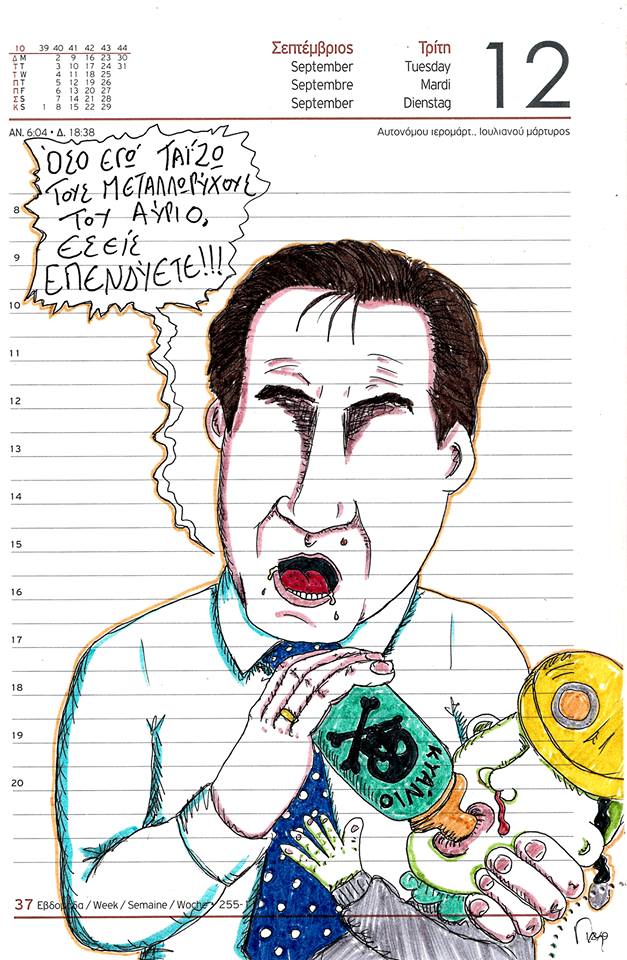 10 39 40 41 42 43 44
Δ M 2 9 16 23 30
Τ T 3 10 17 24 31
Τ W 4 11 18 25
Π T 5 12 19 26
Π F 6 13 20 27
Σ S 7 14 21 28
Κ S 1 8 15 22 29
Σεπτέμβριος Τρίτη
September Tuesday
Septembre Mardi
September Dienstag
12
ΑΝ. 6:04 • Δ. 18:38
Αυτονόμου ιερομάρτ., Ιουλιανού μάρτυρος
ΌΣΟ ΕΓΏ ΤΑΪΖΩ
ΤΟΥΣ ΜΕΤΑΛΛΩΡΎΧΟΥΣ
ΤΟΥ ΑΎΡΙΟ,
ΕΣΕΊΣ
ΕΠΕΝΔΎΕΤΕ!!!
8
9
10
11
12
13
14
15
16
17
18
19
20
ΚΥΆΝΙΟ
37 Εβδομάδα / Week / Semaine / Woche • 255-1